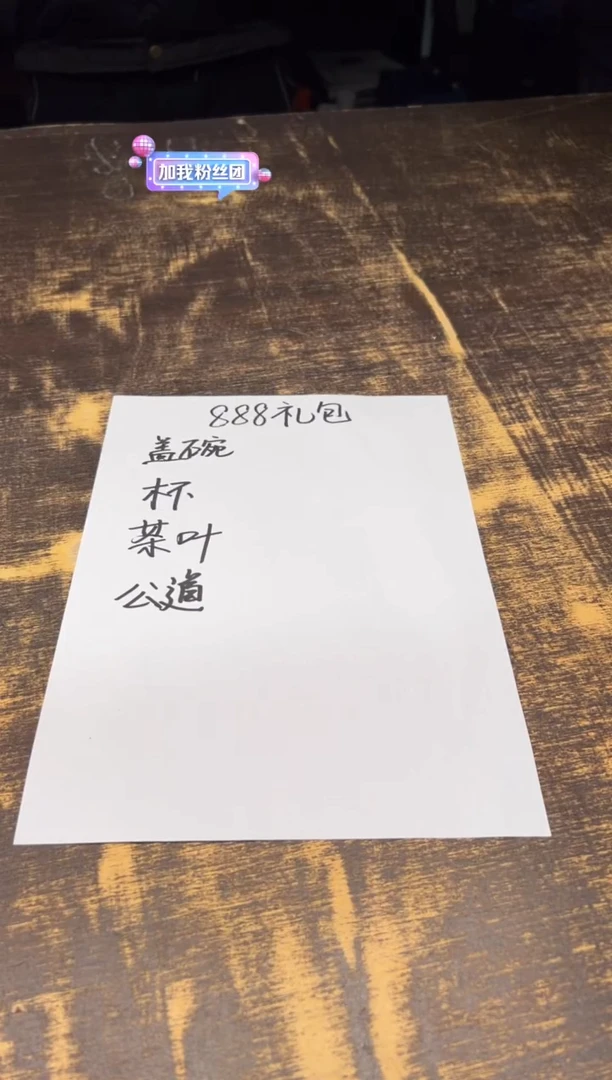 加我粉丝团
888礼包
盖碗
杯
茶叶
公道